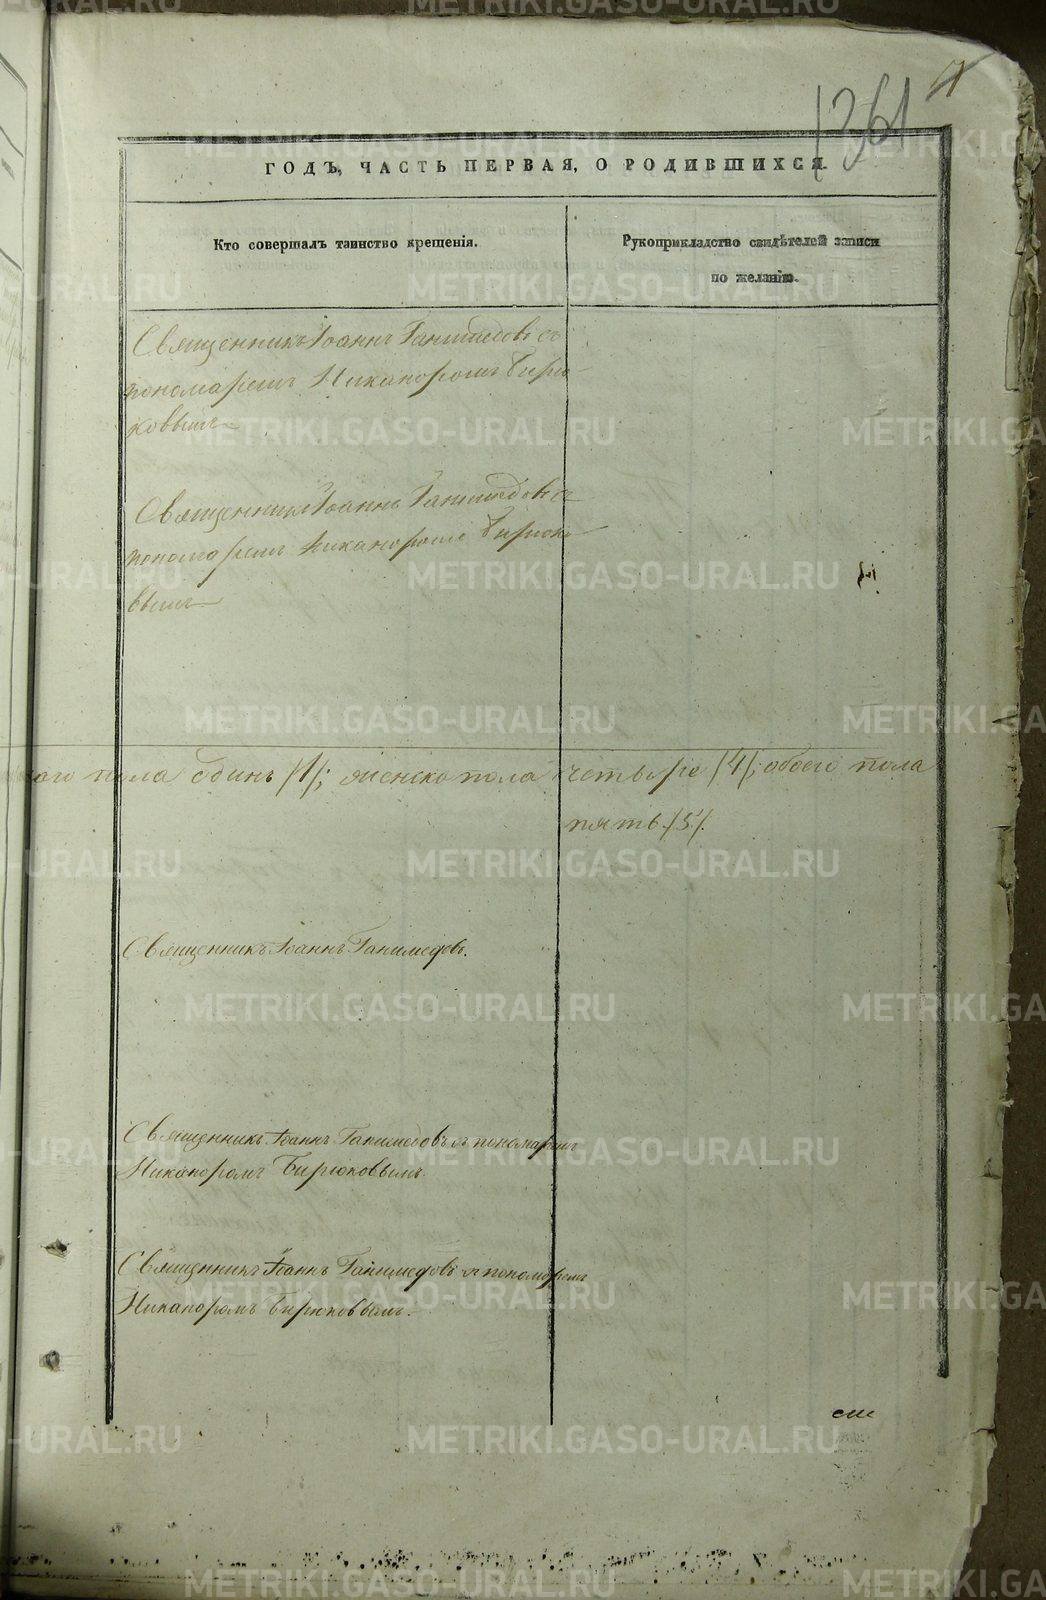 1361
ГОДЪ, ЧАСТЬ ПЕРВАЯ, О РОДИВШИХСЯ.
Кто совершалъ таинство крещенія.
Рукоприкладство свидѣтелей записи
по желанію.
Священникъ Іоаннъ Ганимедовъ съ
пономаремъ Никаноромъ Бирю-
ковымъ
Священникъ Іоаннъ Ганимедовъ съ
пономаремъ Никаноромъ Бирюко-
вымъ
аго пола одинъ /1/; женско пола четыре /4/; обоего пола
пять /5/.
Священникъ Іоаннъ Ганимедовъ.
Священникъ Іоаннъ Ганимедовъ съ пономаремъ
Никаноромъ Бирюковымъ.
Священникъ Іоаннъ Ганимедовъ съ пономаремъ
Никаноромъ Бирюковымъ.
METRIKI.GASO-URAL.RU